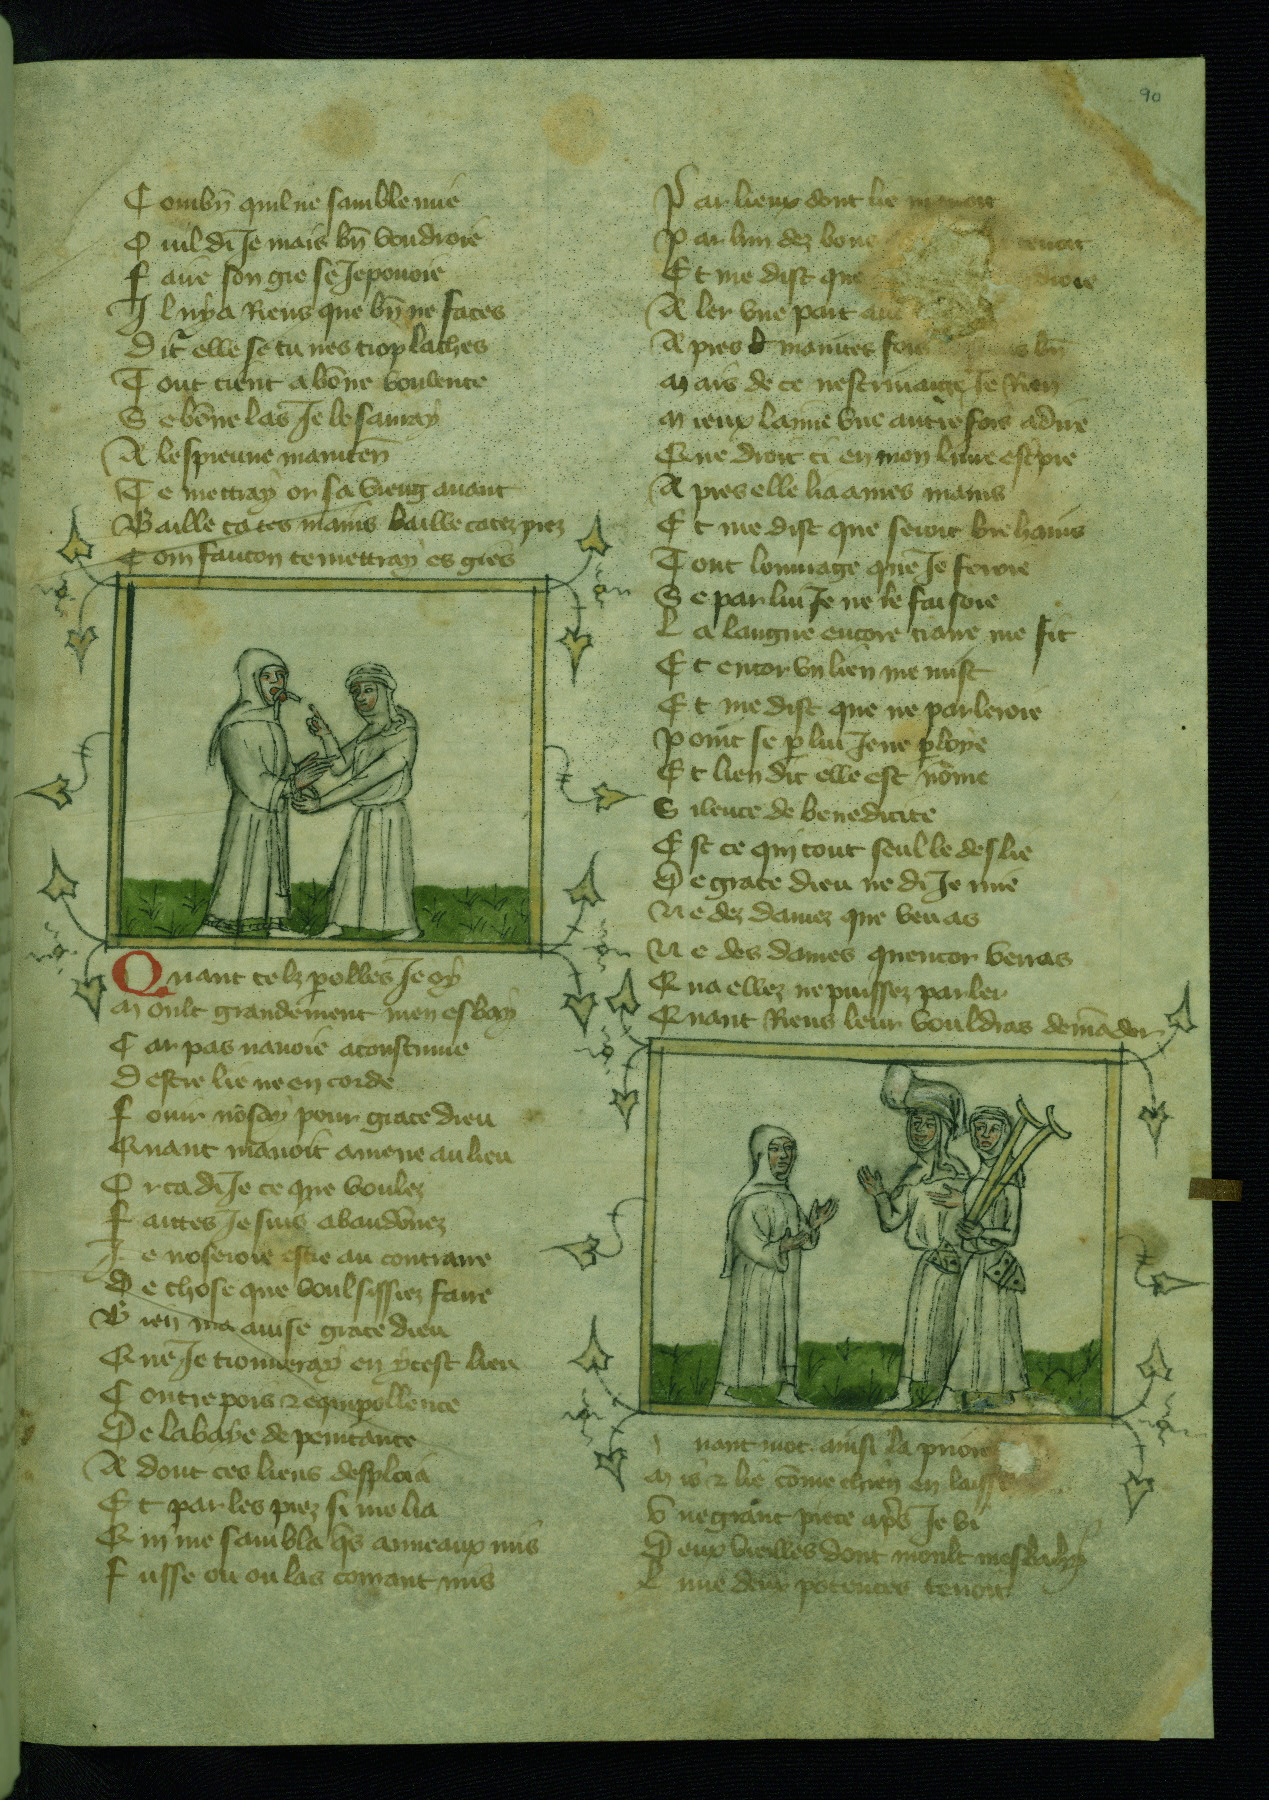 90
Combn̄ quil ne samble mie
Quil di Je mais bn̄ voudroie
faire son gre se Je pouoie
Il ny a Riens que bn̄ ne faces
Dit elle se tu nes trop laches
Tout tient a bōne voulente
Se bōne las Je le sauray
A lespreuue mainten̄
Te mettray or sa vieng auant
Baille ca tes mains baille ca tez piez
Com faucon te mettray es gies
Quant telz polles Je oy
Moult grandement men esbay
Car pas nauoie acoustume
Destre lie ne en corde
fouir nosay pour grace dieu
Quant mauoit amene au lieu
Or ca di Je ce que voulez
faites Je suis abandōnez
Je noseroie estre au contraire
De chose que voulsissiez faire
Bien ma auise grace dieu
Que Je trouueray en ycest lieu
Contre pois et equipollence
De labaye de penitance
A dont ces liens desploia
Et par les piez si me lia
Qui me sambla q̄s anneaux mis
fusse ou ou las comant mis
Par lieux dont lie
Par lun dez bouc
Et me dist que
Aler vne part
Apres mauttes fois bn̄
Mais de ce nescriuaige Je Rien
Mieux laime vne autre fois a dire
Que droit ci en mon liure escpre
Apres elle lia a mes mains
Et me dist que seroit brehains
Tout louurage que Je feroie
Se par lui Je ne le faisoie
La langue encore traire me fit
Et encor vn lien me mist
Et me dist que ne parleroie
Point se p̱ lui Je ne ploye
Et lien dit elle est nōme
Silence de benedicite
Est ce qui tout seul le deslie
De grace dieu ne di Je mie
Ne dez damez que veu as
Ne des dames quencor verras
Qua ellez ne puissez parler
Quant Riens leur vouldras demāder
uant mot ainsi la priore
Mis et lie cōme chien en laisse
Vne grant piece apr̄s Je vi
Deux vieilles dont moult mesbahy
Lune deux potences tenoit